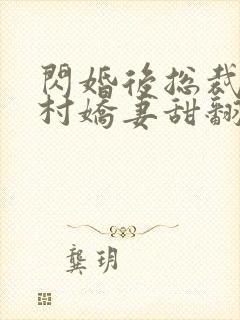 閃婚後總裁
村嬌妻甜翻
龔玥